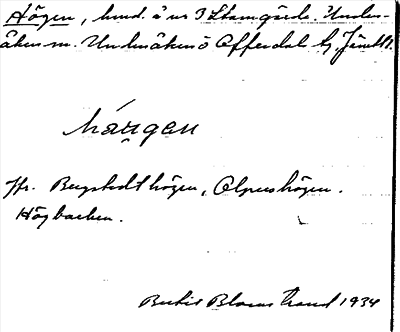 Högen, hmd. å nr 3 Stamgärde. Unders-
åkers sn. Undersåkers o Offerdals tg. Jämtl.
hä̀ugen
Jfr. Bergstedthögen, Olpershögen.
Högbacken.
Bertil Blomstrand 1934